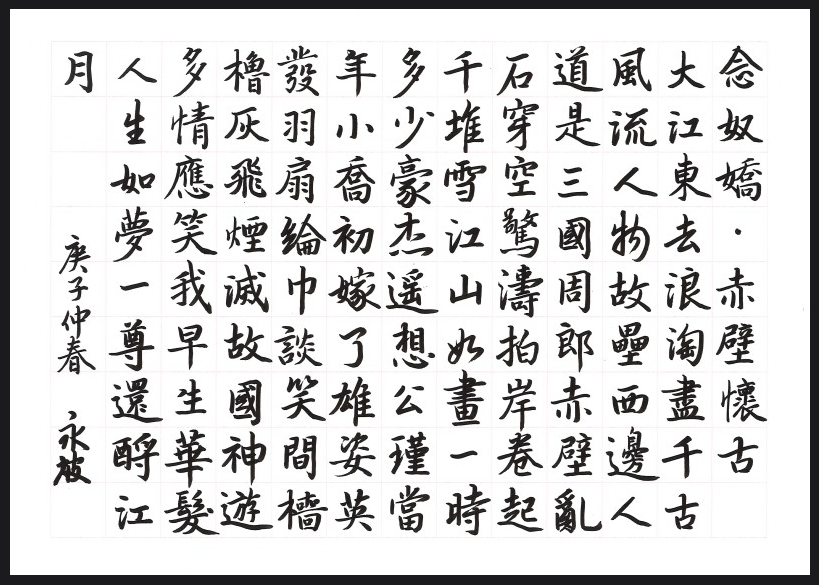 念奴嬌·赤壁懷古
大江東去浪淘盡千古
風流人物故壘西邊人
道是三國周郎赤壁亂
石穿空驚濤拍岸卷起
千堆雪江山如畫一時
多少豪杰遥想公瑾當
年小喬初嫁了雄姿英
發羽扇綸巾談笑間檣
櫓灰飛煙滅故國神遊
多情應笑我早生華髮
人生如夢一尊還酹江
月
庚子仲春 永被